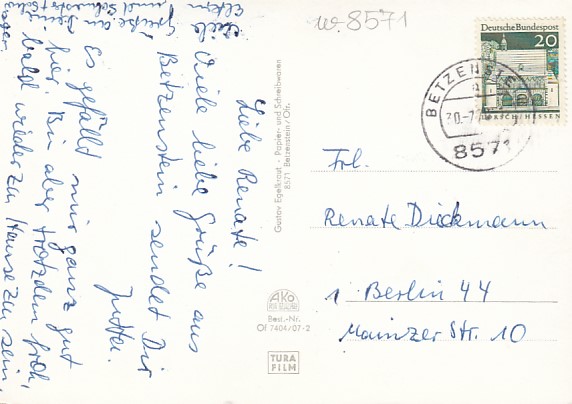 w-8571
Deutsche Bundespost
20
LORSCH/HESSEN
BETZENSTEIN
8571
Liebe Renate!
Viele liebe Grüße aus
Betzenstein sendet Dir
Jutta.
Es gefällt mir ganz gut
hier. Bin aber trotzdem froh,
bald wieder zu Hause zu sein.
Viele
Grüße an
Eltern
und
Gustav Egelkraut · Papier- und Schreibwaren
8571 Betzenstein/Ofr.
AKO
Best.-Nr.
Of 7404/07-2
TURA
FILM
Frl.
Renate Dieckmann
1 Berlin 44
Mainzer Str. 10